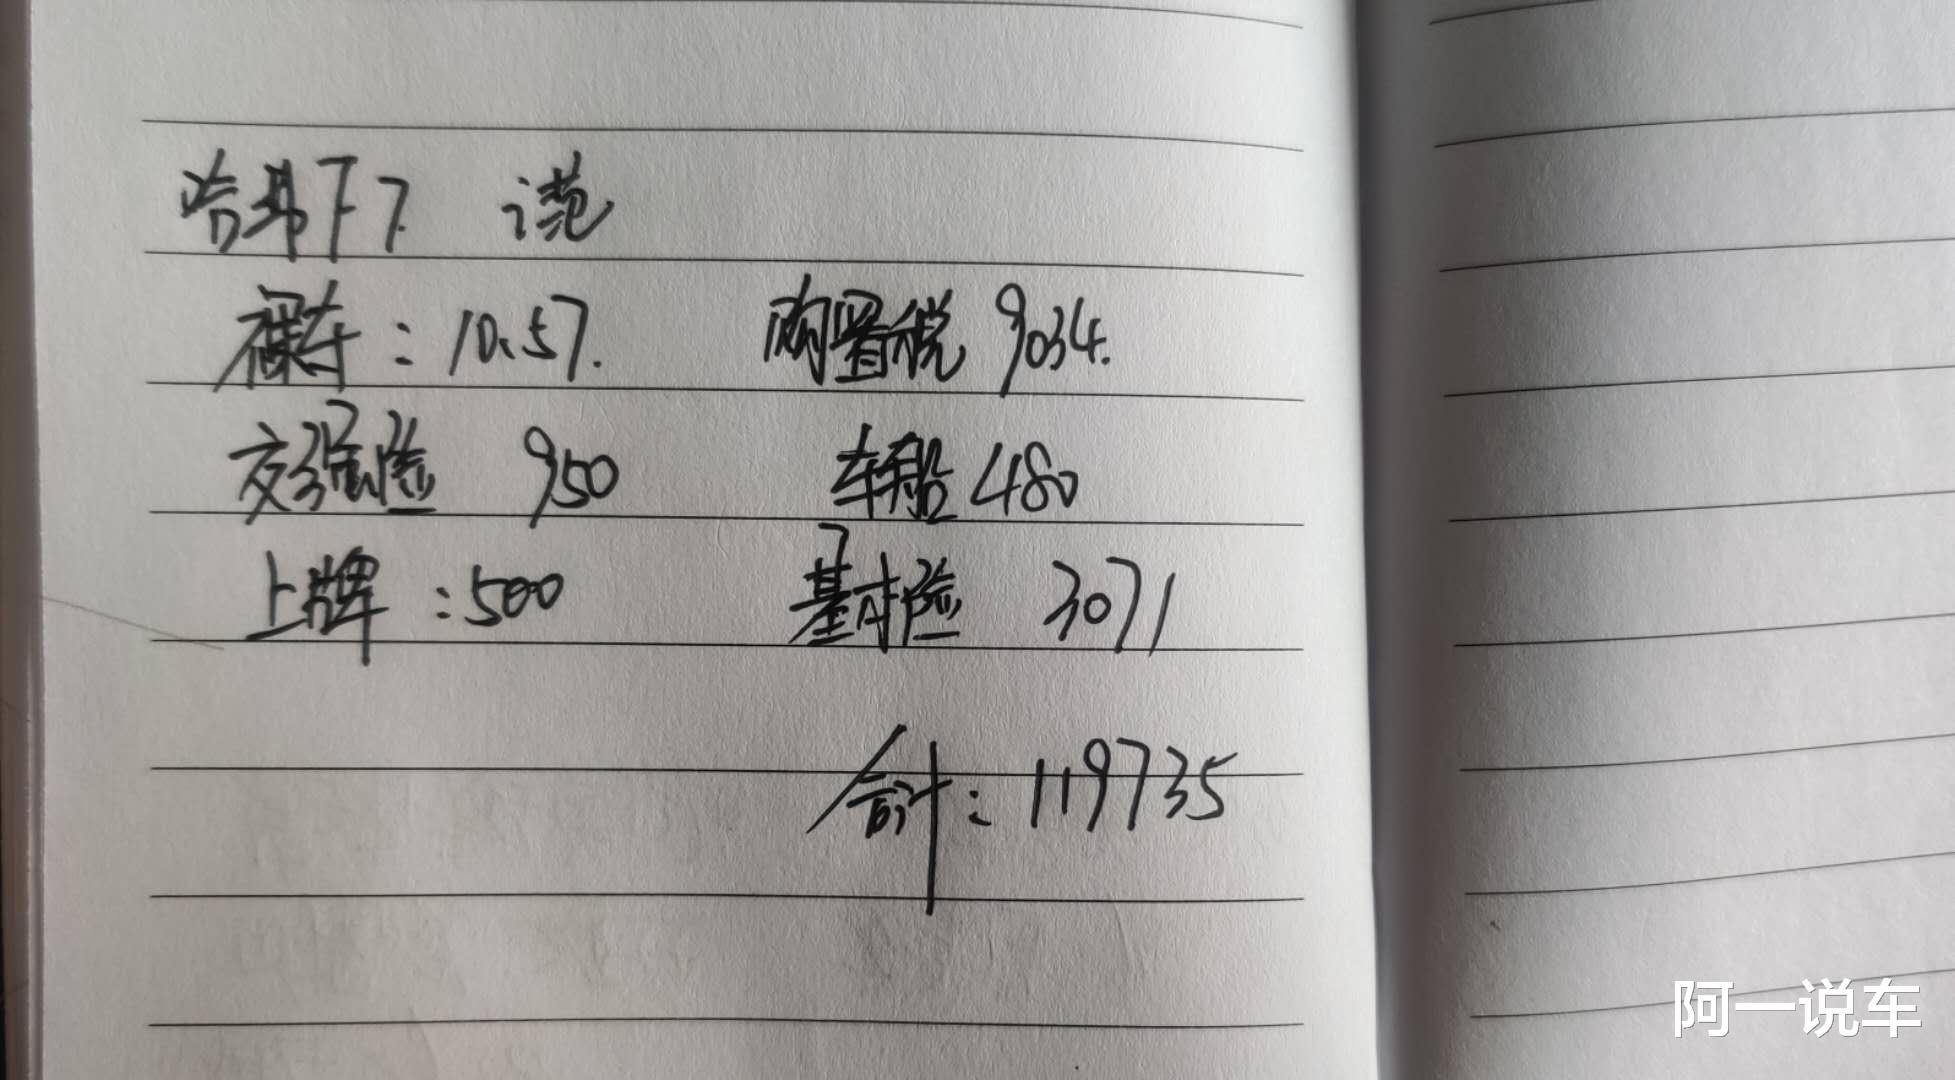 哈弗F7 谍范
裸车：10.57. 购置税 9034.
交强险 950 车船 480
上牌：500 基本险 3071
合计：119735
阿一说车